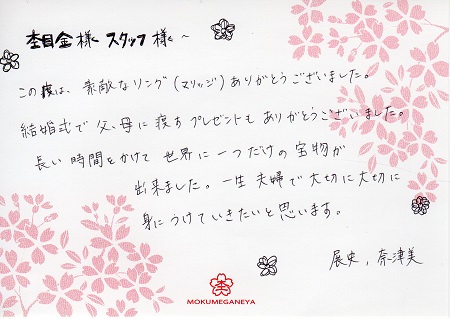 杢目金様 スタッフ様へ
この度は、素敵なリング(マリッジ)ありがとうございました。
結婚式で父、母に渡すプレゼントもありがとうございました。
長い時間をかけて世界に一つだけの宝物が
出来ました。一生夫婦で大切に大切に
身につけていきたいと思います。
展史、奈津美
MOKUMEGANEYA